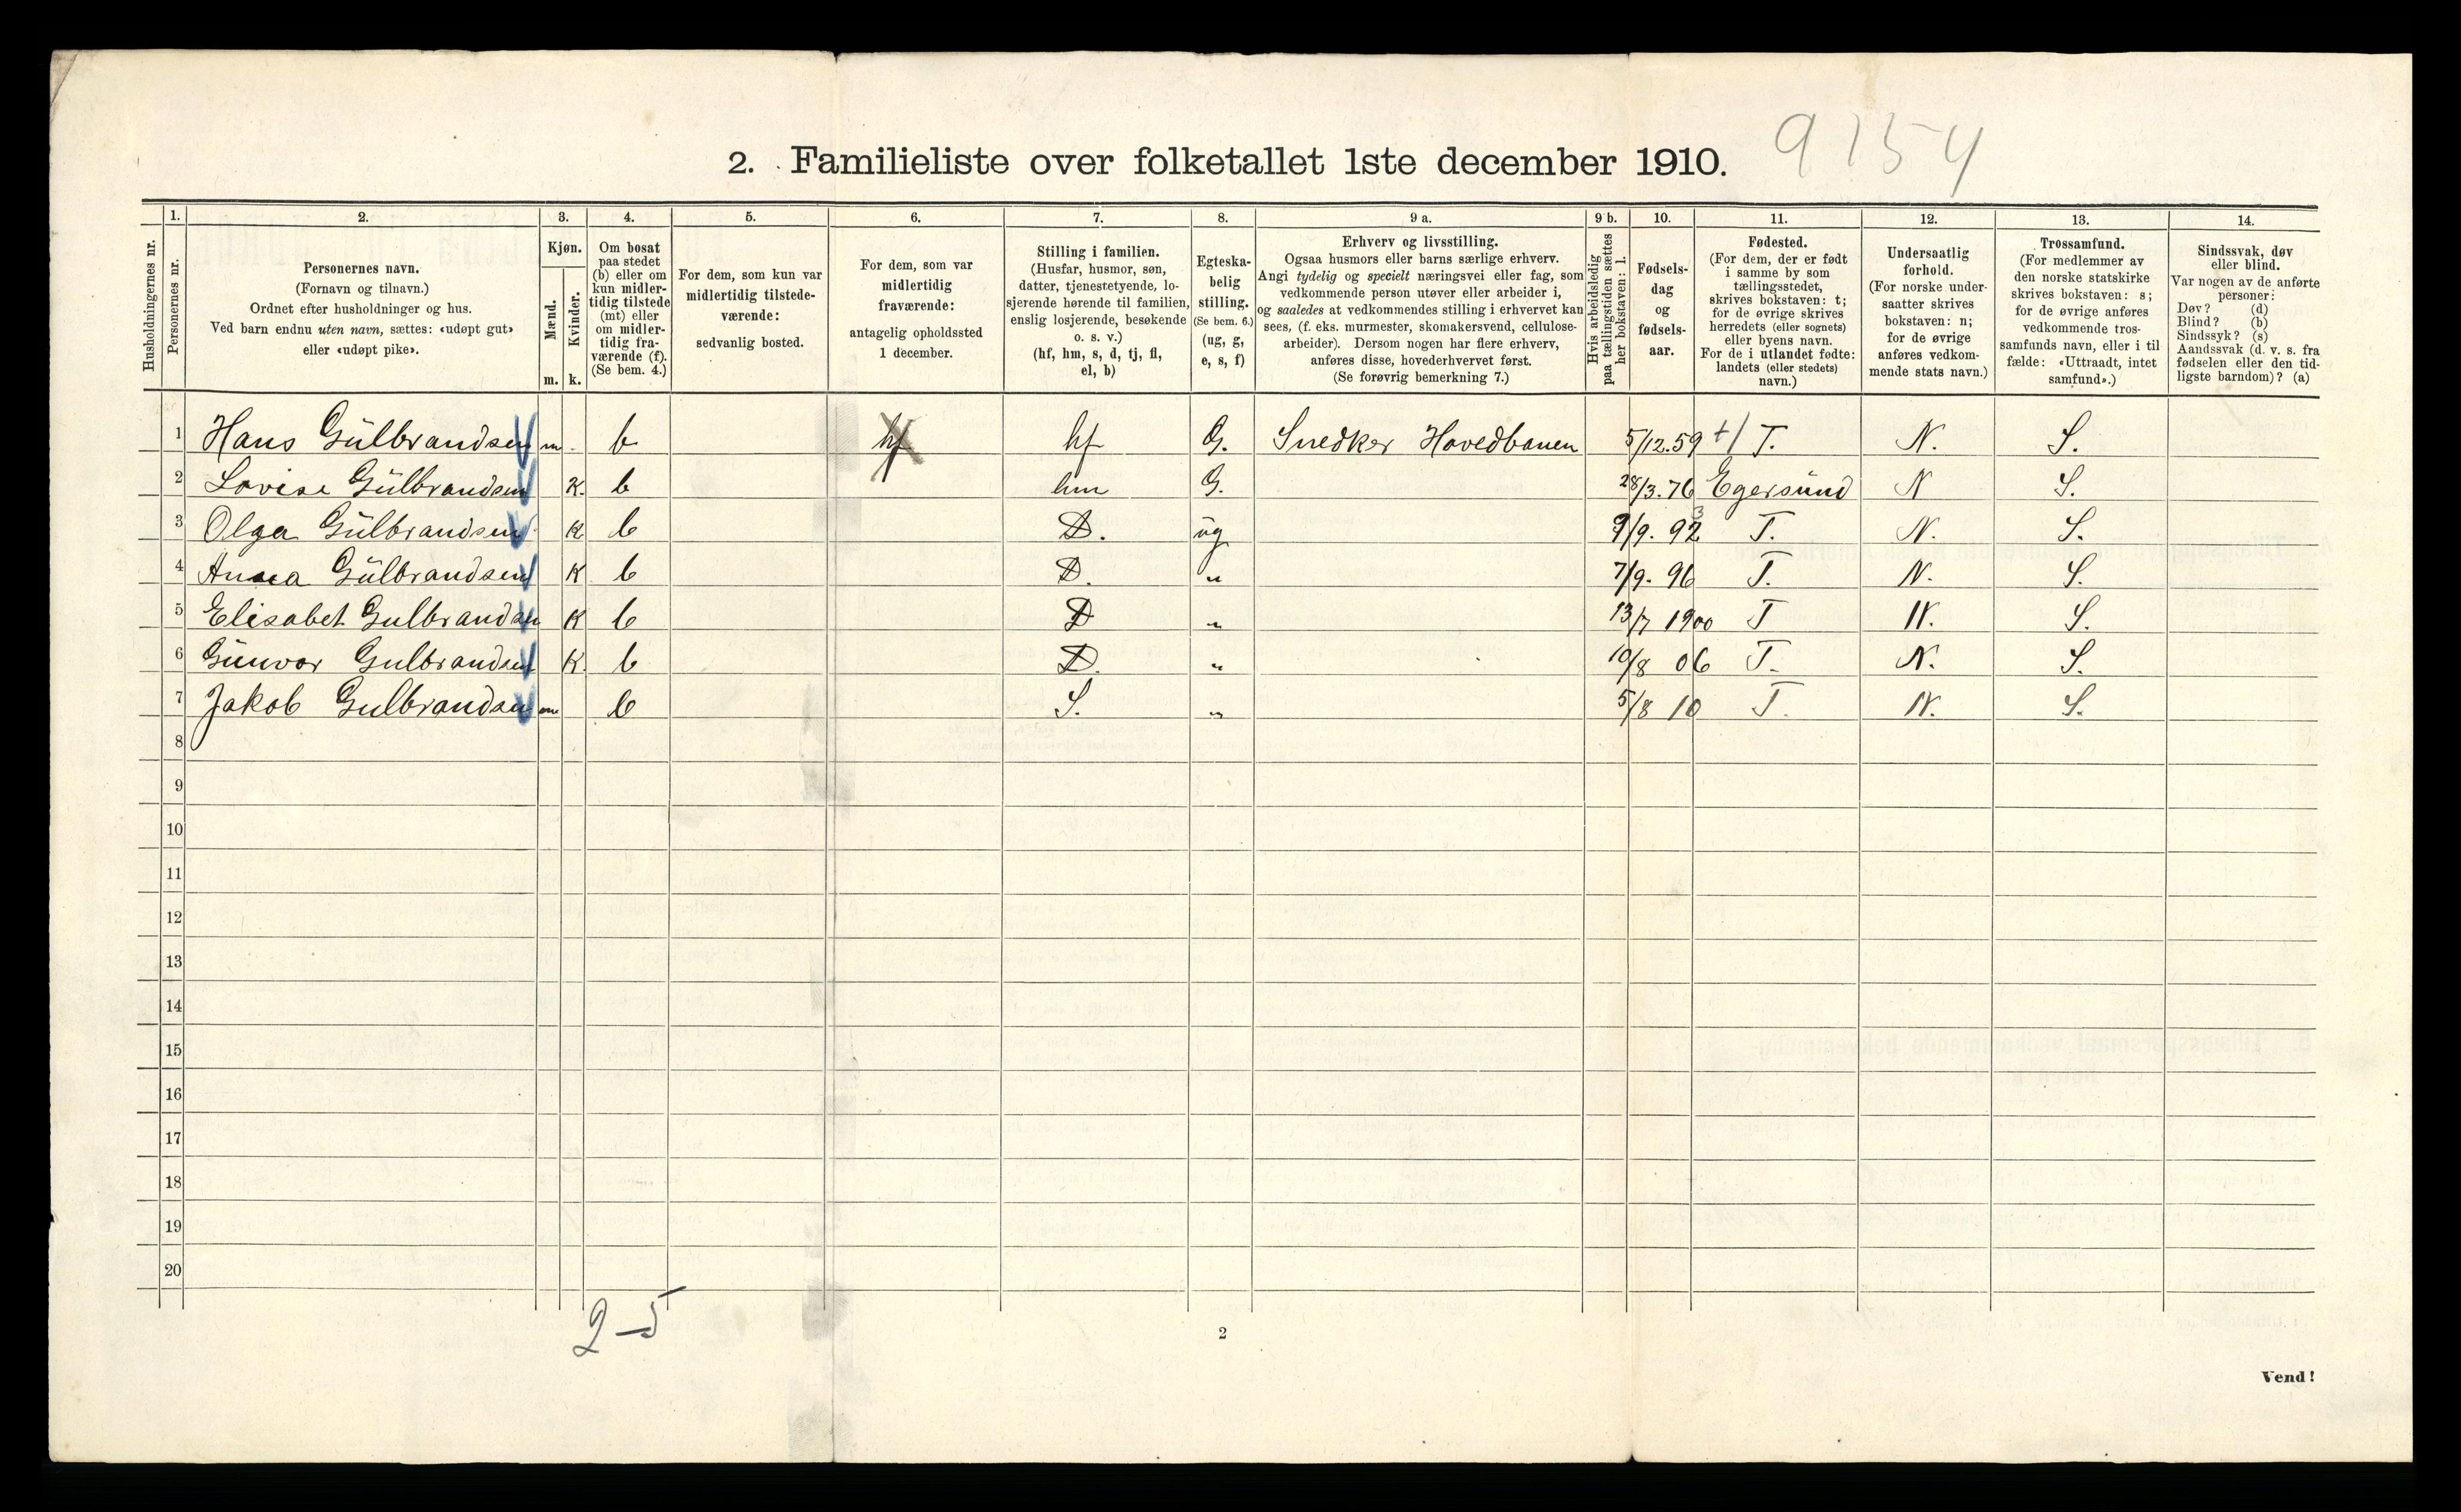 9154
2. Familieliste over folketallet 1ste december 1910.
1. 2. 3. 4. 5. 6. 7. 8. 9 a. 9 b. 10. 11. 12. 13. 14.
Husholdningernes nr.
Personernes nr.
Personernes navn.
(Fornavn og tilnavn.)
Ordnet efter husholdninger og hus.
Ved barn endnu uten navn, sættes: «udøpt gut»
eller «udøpt pike».
Kjøn.
Mænd.
Kvinder.
m. k.
Om bosat
paa stedet
(b) eller om
kun midler-
tidig tilstede
(mt) eller
om midler-
tidig fra-
værende (f).
(Se bem. 4.)
For dem, som kun var
midlertidig tilstede-
værende:
sedvanlig bosted.
For dem, som var
midlertidig
fraværende:
antagelig opholdssted
1 december.
Stilling i familien.
(Husfar, husmor, søn,
datter, tjenestetyende, lo-
sjerende hørende til familien,
enslig losjerende, besøkende
o. s. v.)
(hf, hm, s, d, tj, fl,
el, b)
Egteska-
belig
stilling.
(Se bem. 6.)
(ug, g,
e, s, f)
Erhverv og livsstilling.
Ogsaa husmors eller barns særlige erhverv.
Angi tydelig og specielt næringsvei eller fag, som
vedkommende person utøver eller arbeider i,
og saaledes at vedkommendes stilling i erhvervet kan
sees, (f. eks. murmester, skomakersvend, cellulose-
arbeider). Dersom nogen har flere erhverv,
anføres disse, hovederhvervet først.
(Se forøvrig bemerkning 7.)
Hvis arbeidsledig
paa tællingstiden sættes
her bokstaven: l.
Fødsels-
dag
og
fødsels-
aar.
Fødested.
(For dem, der er født
i samme by som
tællingsstedet,
skrives bokstaven: t;
for de øvrige skrives
herredets (eller sognets)
eller byens navn.
For de i utlandet fødte:
landets (eller stedets)
navn.)
Undersaatlig
forhold.
(For norske under-
saatter skrives
bokstaven: n;
for de øvrige
anføres vedkom-
mende stats navn.)
Trossamfund.
(For medlemmer av
den norske statskirke
skrives bokstaven: s;
for de øvrige anføres
vedkommende tros-
samfunds navn, eller i til
fælde: «Uttraadt, intet
samfund».)
Sindssvak, døv
eller blind.
Var nogen av de anførte
personer:
Døv? (d)
Blind? (b)
Sindssyk? (s)
Aandssvak (d. v. s. fra
fødselen eller den tid-
ligste barndom)? (a)
1 Hans Gülbrandsen m. b hf hf G. Snedker Hovedbanen 5/12.59 t/ T. N. S.
2 Lovise Gülbrandsen K. b hm G. 28/3.76 Egersund N S.
3 Olga Gülbrandsen K b D. ug 9/9. 92 3 T. N. S.
4 Anna Gülbrandsen K b D. " 7/9. 96 T. N. S.
5 Elisabet Gulbrandsen K b D " 13/7 1900 T N. S.
6 Günvor Gulbrandsen K. b D. " 10/8 06 T. N. S.
7 Jakob Gulbrandsen m b S. " 5/8 10 T. N. S.
8
9
10
11
12
13
14
15
16
17
18
19
20
2-5
2
Vend!